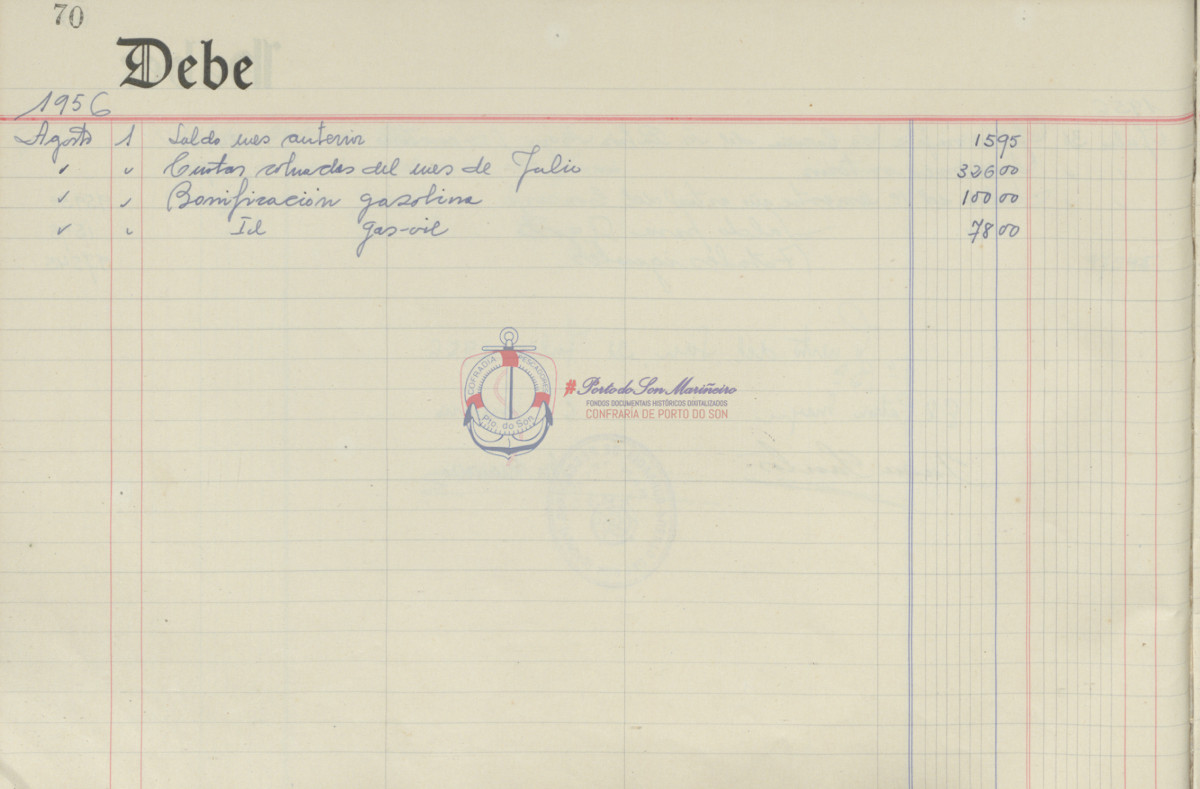 70
Debe
1956
Agosto 1 Saldo mes anterior 15 95
" " Cuotas cobradas del mes de Julio 326 00
" " Bonificación gasolina 100 00
" " Id gas-oil 78 00
COFRADIA PESCADORES
Pto. do Son
# Porto do Son Mariñeiro
FONDOS DOCUMENTAIS HISTÓRICOS DIXITALIZADOS
CONFRARÍA DE PORTO DO SON